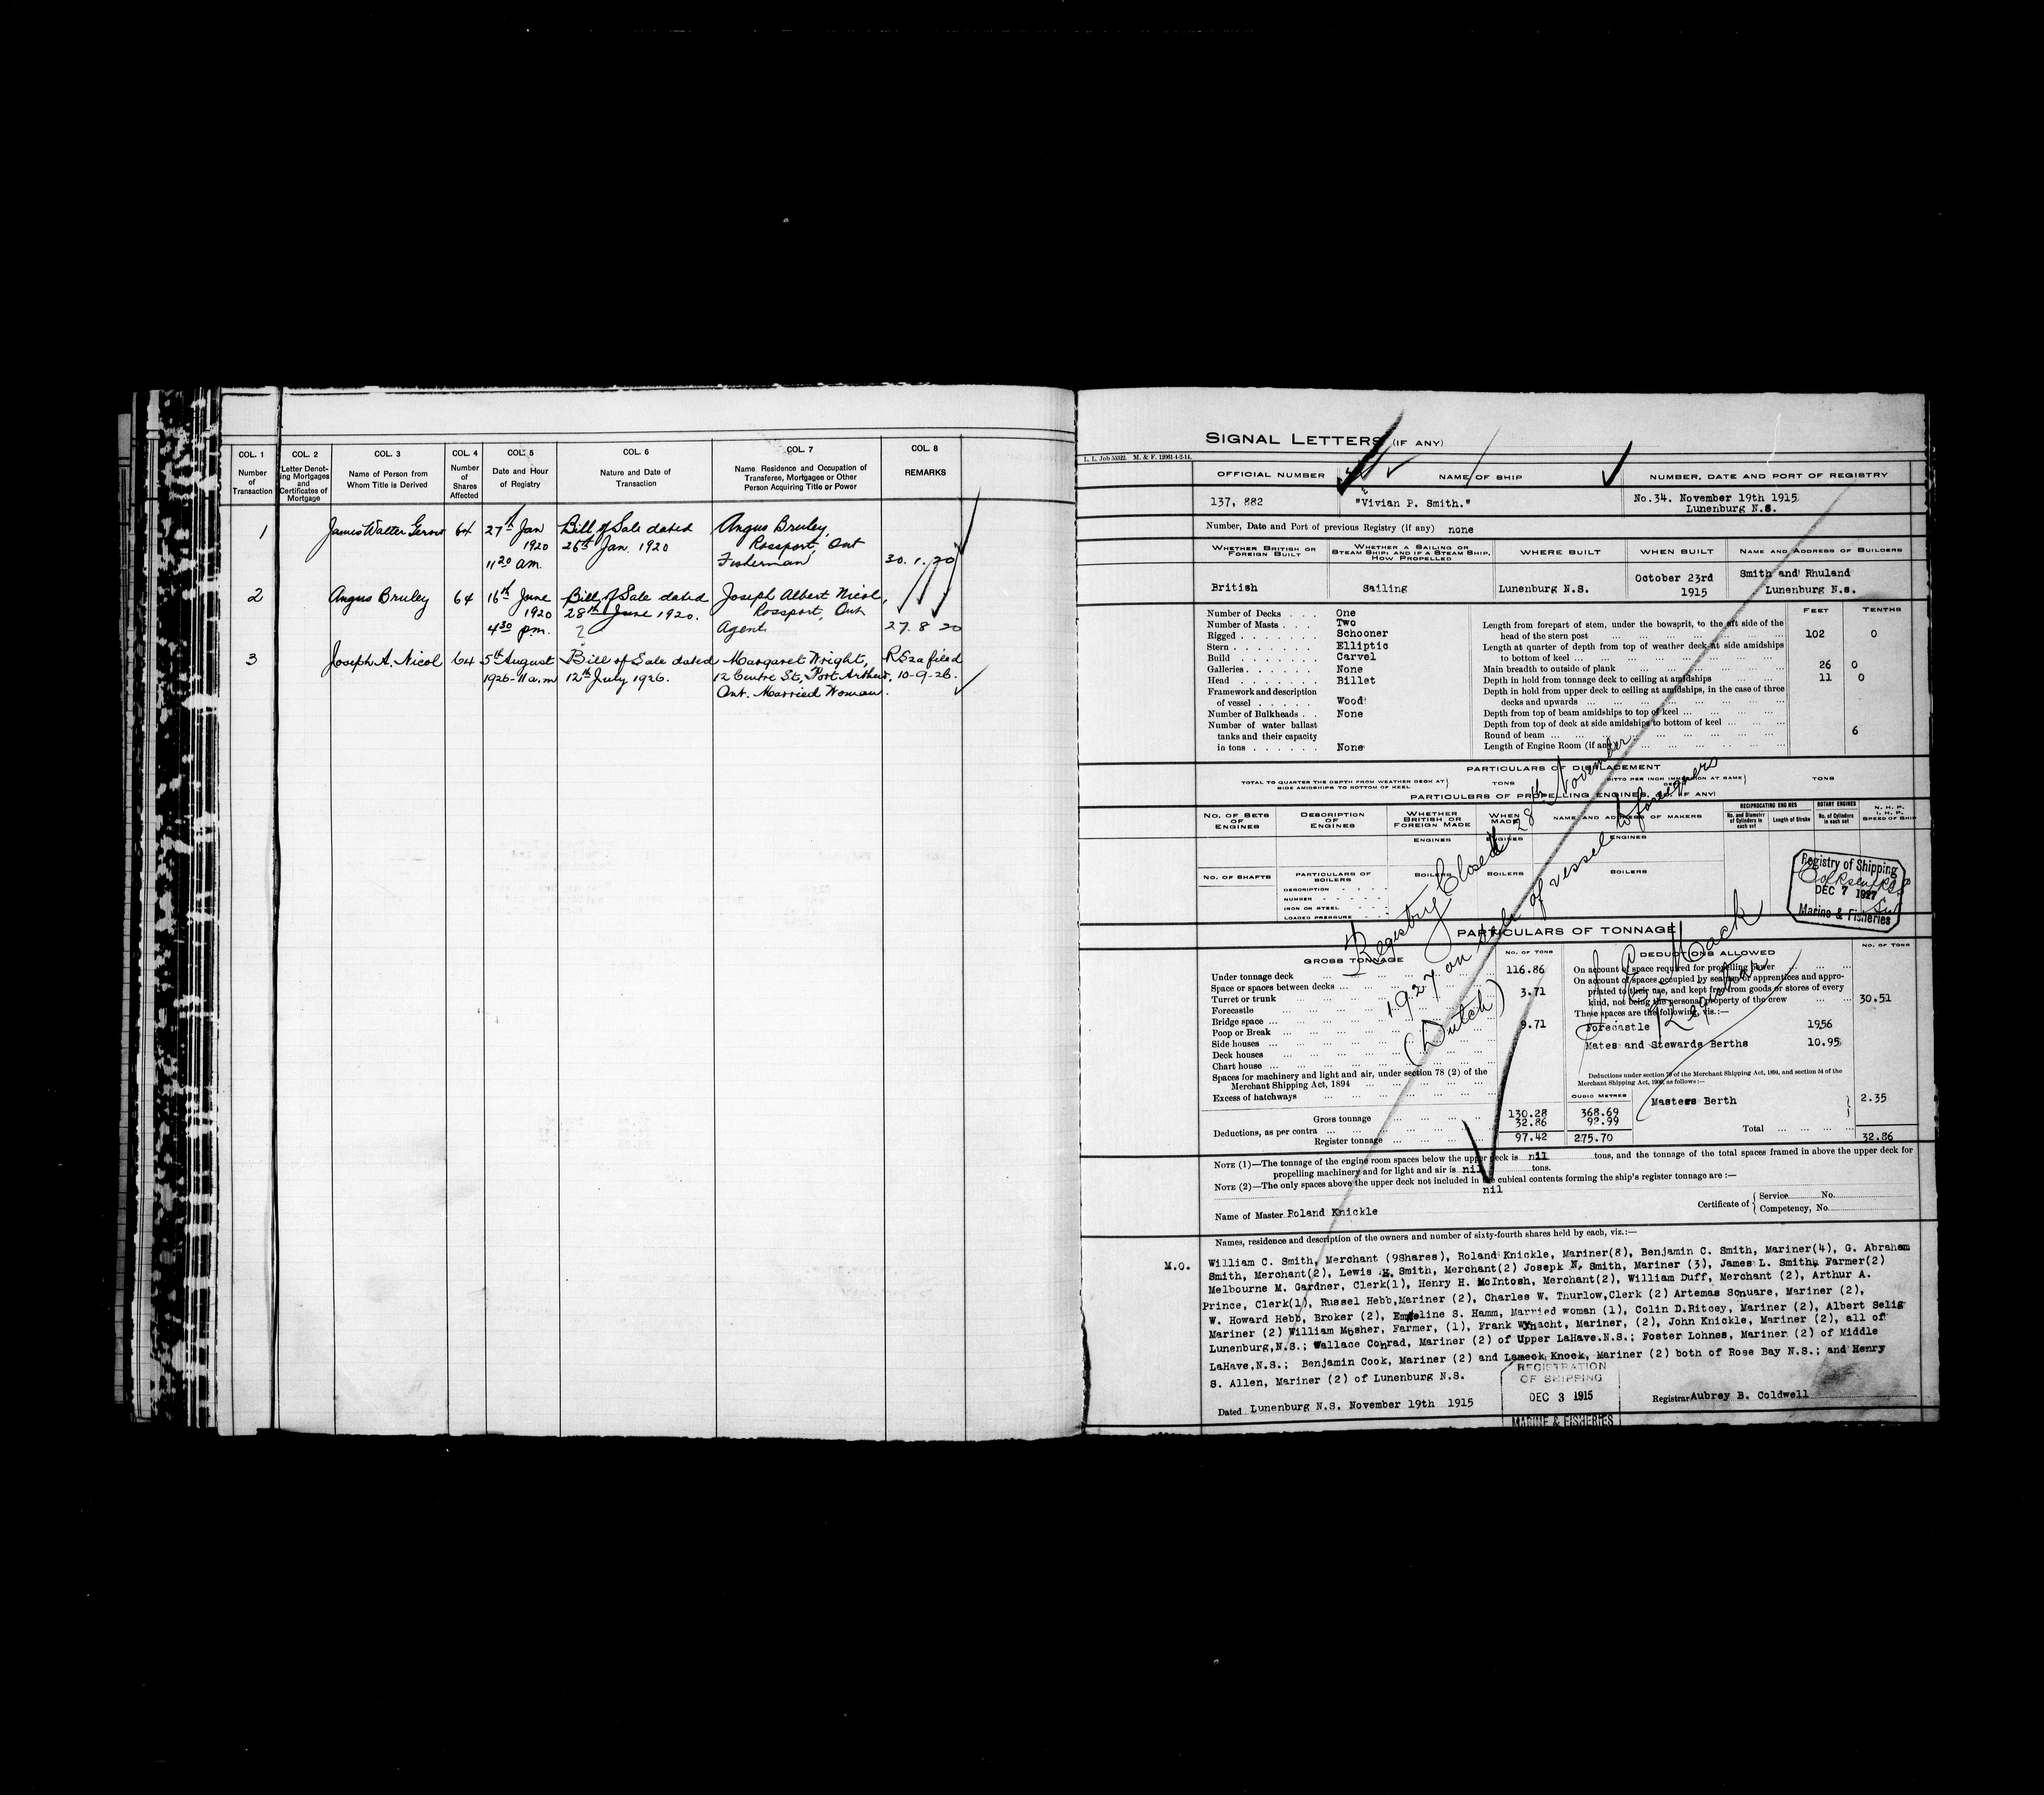 COL. 1
Number
of
Transaction
COL. 2
Letter Denot-
ing Mortgages
and
Certificates of
Mortgage
COL. 3
Name of Person from
Whom Title is Derived
COL. 4
Number
of
Shares
Affected
COL. 5
Date and Hour
of Registry
COL. 6
Nature and Date of
Transaction
COL. 7
Name Residence and Occupation of
Transferee, Mortgagee or Other
Person Acquiring Title or Power
COL. 8
REMARKS
1 James Walter Gerow 64 27th Jan Bill of Sale dated Angus Bruley,
1920 26th Jan. 1920 Rossport, Ont
11 20 am. Fisherman 30. 1. 20
2 Angus Bruley 64 16th June Bill of Sale dated Joseph Albert Nicol,
1920 28th June 1920. Rossport, Ont
4 30 pm. ? Agent. 27. 8 20
3 Joseph A. Nicol 64 5th August Bill of Sale dated Margaret Wright, R52a filed
1926-11 a.m 12th July 1926. 12 Centre St., Port Arthur, 10-9-26.
Ont. Married Woman.
SIGNAL LETTERS (IF ANY)
L. L. Job 55322. M. & F. 12061 4-2-14.
OFFICIAL NUMBER NAME OF SHIP NUMBER, DATE AND PORT OF REGISTRY
137, 882 "Vivian P. Smith." No.34. November 19th 1915
Lunenburg N.S.
Number, Date and Port of previous Registry (if any) none
WHETHER BRITISH OR
FOREIGN BUILT
WHETHER A SAILING OR
STEAM SHIP; AND IF A STEAM SHIP,
HOW PROPELLED
WHERE BUILT
WHEN BUILT
NAME AND ADDRESS OF BUILDERS
British Sailing Lunenburg N.S. October 23rd
1915
Smith and Rhuland
Lunenburg N.S.
FEET TENTHS
Number of Decks One
Number of Masts Two
Rigged Schooner
Stern Elliptic
Build Carvel
Galleries None
Head Billet
Framework and description
of vessel Wood
Number of Bulkheads None
Number of water ballast
tanks and their capacity
in tons None
Length from forepart of stem, under the bowsprit, to the aft side of the
head of the stern post 102 0
Length at quarter of depth from top of weather deck at side amidships
to bottom of keel
Main breadth to outside of plank 26 0
Depth in hold from tonnage deck to ceiling at amidships 11 0
Depth in hold from upper deck to ceiling at amidships, in the case of three
decks and upwards
Depth from top of beam amidships to top of keel
Depth from top of deck at side amidships to bottom of keel
Round of beam 6
Length of Engine Room (if any)
PARTICULARS OF DISPLACEMENT
TOTAL TO QUARTER THE DEPTH FROM WEATHER DECK AT
SIDE AMIDSHIPS TO BOTTOM OF KEEL
TONS
DITTO PER INCH IMMERSION AT SAME
TONS
PARTICULBRS OF PROPELLING ENGINES, (IF ANY)
NO. OF SETS
OF
ENGINES
DESCRIPTION
OF
ENGINES
WHETHER
BRITISH OR
FOREIGN MADE
WHEN
MADE
NAME AND ADDRESS OF MAKERS
RECIPROCATING ENGINES
No. and Diameter
of Cylinders in
each set
Length of Stroke
ROTARY ENGINES
No. of Cylinders
in each set
N. H. P.
I. H. P.
SPEED OF SHIP
ENGINES ENGINES ENGINES
NO. OF SHAFTS
PARTICULARS OF
BOILERS
DESCRIPTION
NUMBER
IRON OR STEEL
LOADED PRESSURE
BOILERS BOILERS BOILERS
Registry of Shipping
DEC 7 1927
Marine & Fisheries
Registry Closed 28th November
1927 on sale of vessel to foreigners
(Dutch)
Mack
Registrar
PARTICULARS OF TONNAGE
GROSS TONNAGE NO. OF TONS
Under tonnage deck 116.86
Space or spaces between decks
Turret or trunk 3.71
Forecastle
Bridge space
Poop or Break 9.71
Side houses
Deck houses
Chart house
Spaces for machinery and light and air, under section 78 (2) of the
Merchant Shipping Act, 1894
Excess of hatchways
CUBIC METRES
Gross tonnage 130.28 368.69
Deductions, as per contra 32.86 92.99
Register tonnage 97.42 275.70
DEDUCTIONS ALLOWED NO. OF TONS
On account of space required for propelling power
On account of spaces occupied by seamen or apprentices and appro-
priated to their use, and kept free from goods or stores of every
kind, not being the personal property of the crew 30.51
These spaces are the following, viz.:—
Forecastle 1956
Mates and Stewards Berths 10.95
Deductions under section 79 of the Merchant Shipping Act, 1894, and section 54 of the
Merchant Shipping Act, 1906, as follows:—
Masters Berth 2.35
Total 32.86
NOTE (1)—The tonnage of the engine room spaces below the upper deck is nil tons, and the tonnage of the total spaces framed in above the upper deck for
propelling machinery and for light and air is nil tons.
NOTE (2)—The only spaces above the upper deck not included in the cubical contents forming the ship's register tonnage are :—
nil
Name of Master Roland Knickle
Certificate of Service No.
Competency, No.
Names, residence and description of the owners and number of sixty-fourth shares held by each, viz.:—
M.O. William C. Smith, Merchant (9Shares), Roland Knickle, Mariner(8), Benjamin C. Smith, Mariner(4), G. Abraham
Smith, Merchant(2), Lewis H. Smith, Merchant(2) Josepk N. Smith, Mariner (3), James L. Smith, Farmer(2)
Melbourne M. Gardner, Clerk(1), Henry H. McIntosh, Merchant(2), William Duff, Merchant (2), Arthur A.
Prince, Clerk(1), Russel Hebb,Mariner (2), Charles W. Thurlow,Clerk (2) Artemas Scnuare, Mariner (2),
W. Howard Hebb, Broker (2), Emmeline S. Hamm, Married woman (1), Colin D.Ritcey, Mariner (2), Albert Selig
Mariner (2) William Mosher, Farmer, (1), Frank Wynacht, Mariner, (2), John Knickle, Mariner (2), all of
Lunenburg,N.S.; Wallace Conrad, Mariner (2) of Upper LaHave.N.S.; Foster Lohnes, Mariner (2) of Middle
LaHave,N.S.; Benjamin Cook, Mariner (2) and Lameck Knock, Mariner (2) both of Rose Bay N.S.; and Henry
S. Allen, Mariner (2) of Lunenburg N.S.
REGISTRATION
OF SHIPPING
DEC 3 1915
MARINE & FISHERIES
Dated Lunenburg N.S. November 19th 1915
Registrar Aubrey B. Coldwell